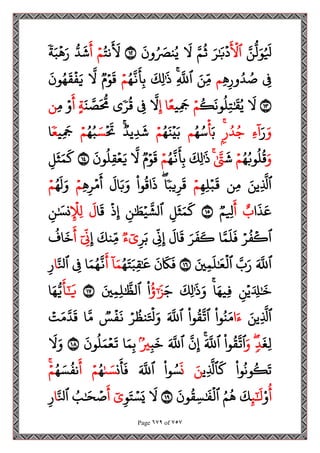 لَيُوَلُّنَّ ٱلۡأَدۡبَٰرَ ثُمَّ لَا يُنصَرُونَ ١٢ لَأَنتُمۡ أَشَدُّ رَهۡبَةٗ
فِي صُدُورِهِم مِّنَ ٱللَّهِۚ ذَٰلِكَ بِأَنَّهُمۡ قَوۡمٞ لَّا يَفۡقَهُونَ
١٣ لَا يُقَٰتِلُونَكُمۡ جَمِيعًا إِلَّا فِي قُرٗى مُّحَصَّنَةٍ أَوۡ مِن
وَرَآءِ جُدُرِۭۚ بَأۡسُهُم بَيۡنَهُمۡ شَدِيدٞۚ تَحۡسَبُهُمۡ جَمِيعٗا
وَقُلُوبُهُمۡ شَتَّىٰۚ ذَٰلِكَ بِأَنَّهُمۡ قَوۡمٞ لَّا يَعۡقِلُونَ ١٤ كَمَثَلِ
ٱلَّذِينَ مِن قَبۡلِهِمۡ قَرِيبٗاۖ ذَاقُواْ وَبَالَ أَمۡرِهِمۡ وَلَهُمۡ
عَذَابٌ أَلِيمٞ ١٥ كَمَثَلِ ٱلشَّيۡطَٰنِ إِذۡ قَالَ لِلۡإِنسَٰنِ
ٱكۡفُرۡ فَلَمَّا كَفَرَ قَالَ إِنِّي بَرِيٓءٞ مِّنكَ إِنِّيٓ أَخَافُ
ٱللَّهَ رَبَّ ٱلۡعَٰلَمِينَ ١٦ فَكَانَ عَٰقِبَتَهُمَآ أَنَّهُمَا فِي ٱلنَّارِ
خَٰلِدَيۡنِ فِيهَاۚ وَذَٰلِكَ جَزَٰٓؤُاْ ٱلظَّٰلِمِينَ ١٧ يَٰٓأَيُّهَا
ٱلَّذِينَ ءَامَنُواْ ٱتَّقُواْ ٱللَّهَ وَلۡتَنظُرۡ نَفۡسٞ مَّا قَدَّمَتۡ
لِغَدٖۖ وَٱتَّقُواْ ٱللَّهَۚ إِنَّ ٱللَّهَ خَبِيرُۢ بِمَا تَعۡمَلُونَ ١٨ وَلَا
تَكُونُواْ كَٱلَّذِينَ نَسُواْ ٱللَّهَ فَأَنسَىٰهُمۡ أَنفُسَهُمۡۚ
أُوْلَٰٓئِكَ هُمُ ٱلۡفَٰسِقُونَ ١٩ لَا يَسۡتَوِيٓ أَصۡحَٰبُ ٱلنَّارِ
Page ٦٧٩ of ٧٥٧